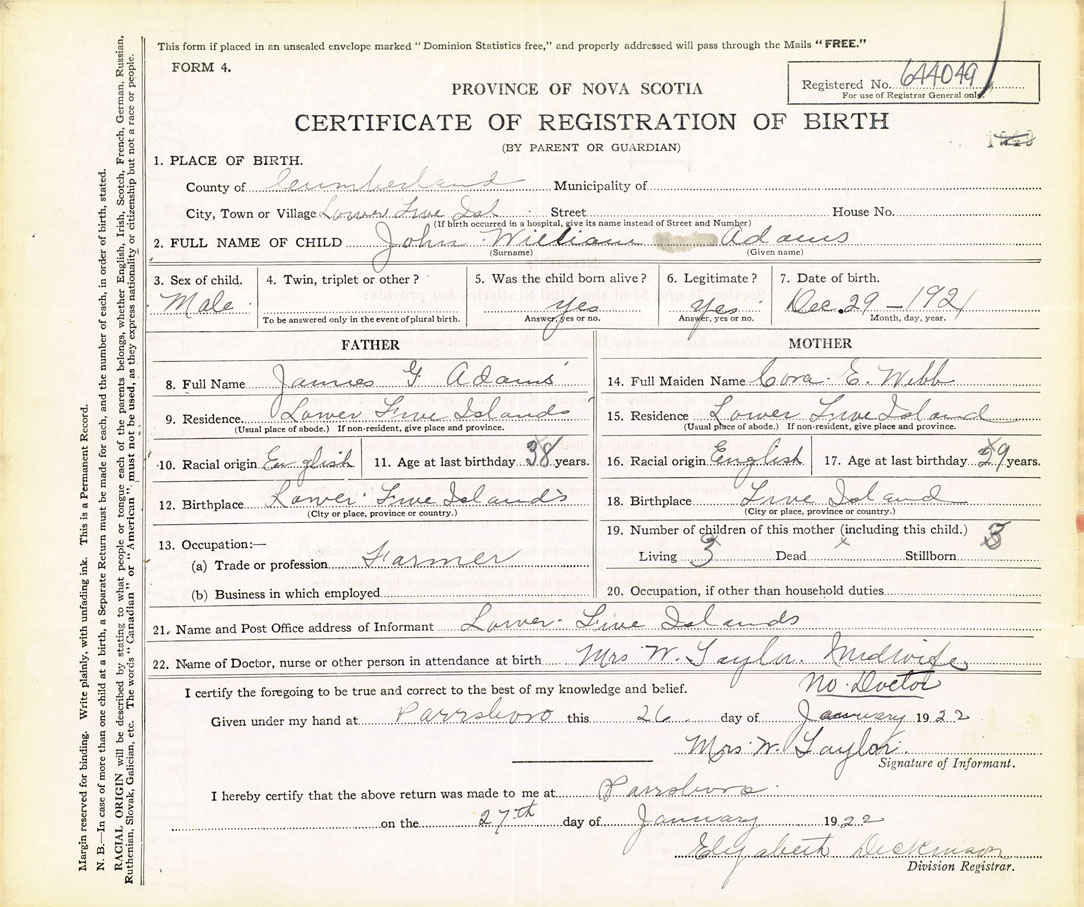 This form if placed in an unsealed envelope marked "Dominion Statistics free," and properly addressed will pass through the Mails "FREE."
FORM 4.
Registered No. 644049
For use of Registrar General only.
PROVINCE OF NOVA SCOTIA
CERTIFICATE OF REGISTRATION OF BIRTH
(BY PARENT OR GUARDIAN)
1. PLACE OF BIRTH.
County of Cumberland Municipality of
City, Town or Village Lower Five Isl Street House No.
(If birth occurred in a hospital, give its name instead of Street and Number)
2. FULL NAME OF CHILD John William Adams
(Surname) (Given name)
3. Sex of child. 4. Twin, triplet or other? 5. Was the child born alive? 6. Legitimate? 7. Date of birth.
Male yes yes Dec. 29 - 1921
To be answered only in the event of plural birth. Answer, yes or no. Answer, yes or no. Month, day, year.
FATHER
8. Full Name James G Adams
9. Residence Lower Five Islands
(Usual place of abode.) If non-resident, give place and province.
10. Racial origin English 11. Age at last birthday 38 years.
12. Birthplace Lower Five Islands
(City or place, province or country.)
13. Occupation:—
(a) Trade or profession Farmer
(b) Business in which employed
MOTHER
14. Full Maiden Name Cora E. Webb
15. Residence Lower Five Island
(Usual place of abode.) If non-resident, give place and province.
16. Racial origin English 17. Age at last birthday 29 years.
18. Birthplace Five Island
(City or place, province or country.)
19. Number of children of this mother (including this child.)
Living 3 Dead x Stillborn
20. Occupation, if other than household duties
21. Name and Post Office address of Informant Lower Five Islands
22. Name of Doctor, nurse or other person in attendance at birth Mrs W. Taylor. Midwife
No Doctor
I certify the foregoing to be true and correct to the best of my knowledge and belief.
Given under my hand at Parrsboro this 26 day of January 1922
Mrs W. Taylor.
Signature of Informant.
I hereby certify that the above return was made to me at Parrsboro
on the 27th day of January 1922
Elizabeth Dickinson
Division Registrar.
Margin reserved for binding. Write plainly, with unfading ink. This is a Permanent Record.
N. B.—In case of more than one child at a birth, a Separate Return must be made for each, and the number of each, in order of birth, stated.
RACIAL ORIGIN will be described by stating to what people or tongue each of the parents belongs, whether English, Irish, Scotch, French, German, Russian,
Ruthenian, Slovak, Galician, etc. The words "Canadian" or "American" must not be used, as they express nationality or citizenship but not a race or people.